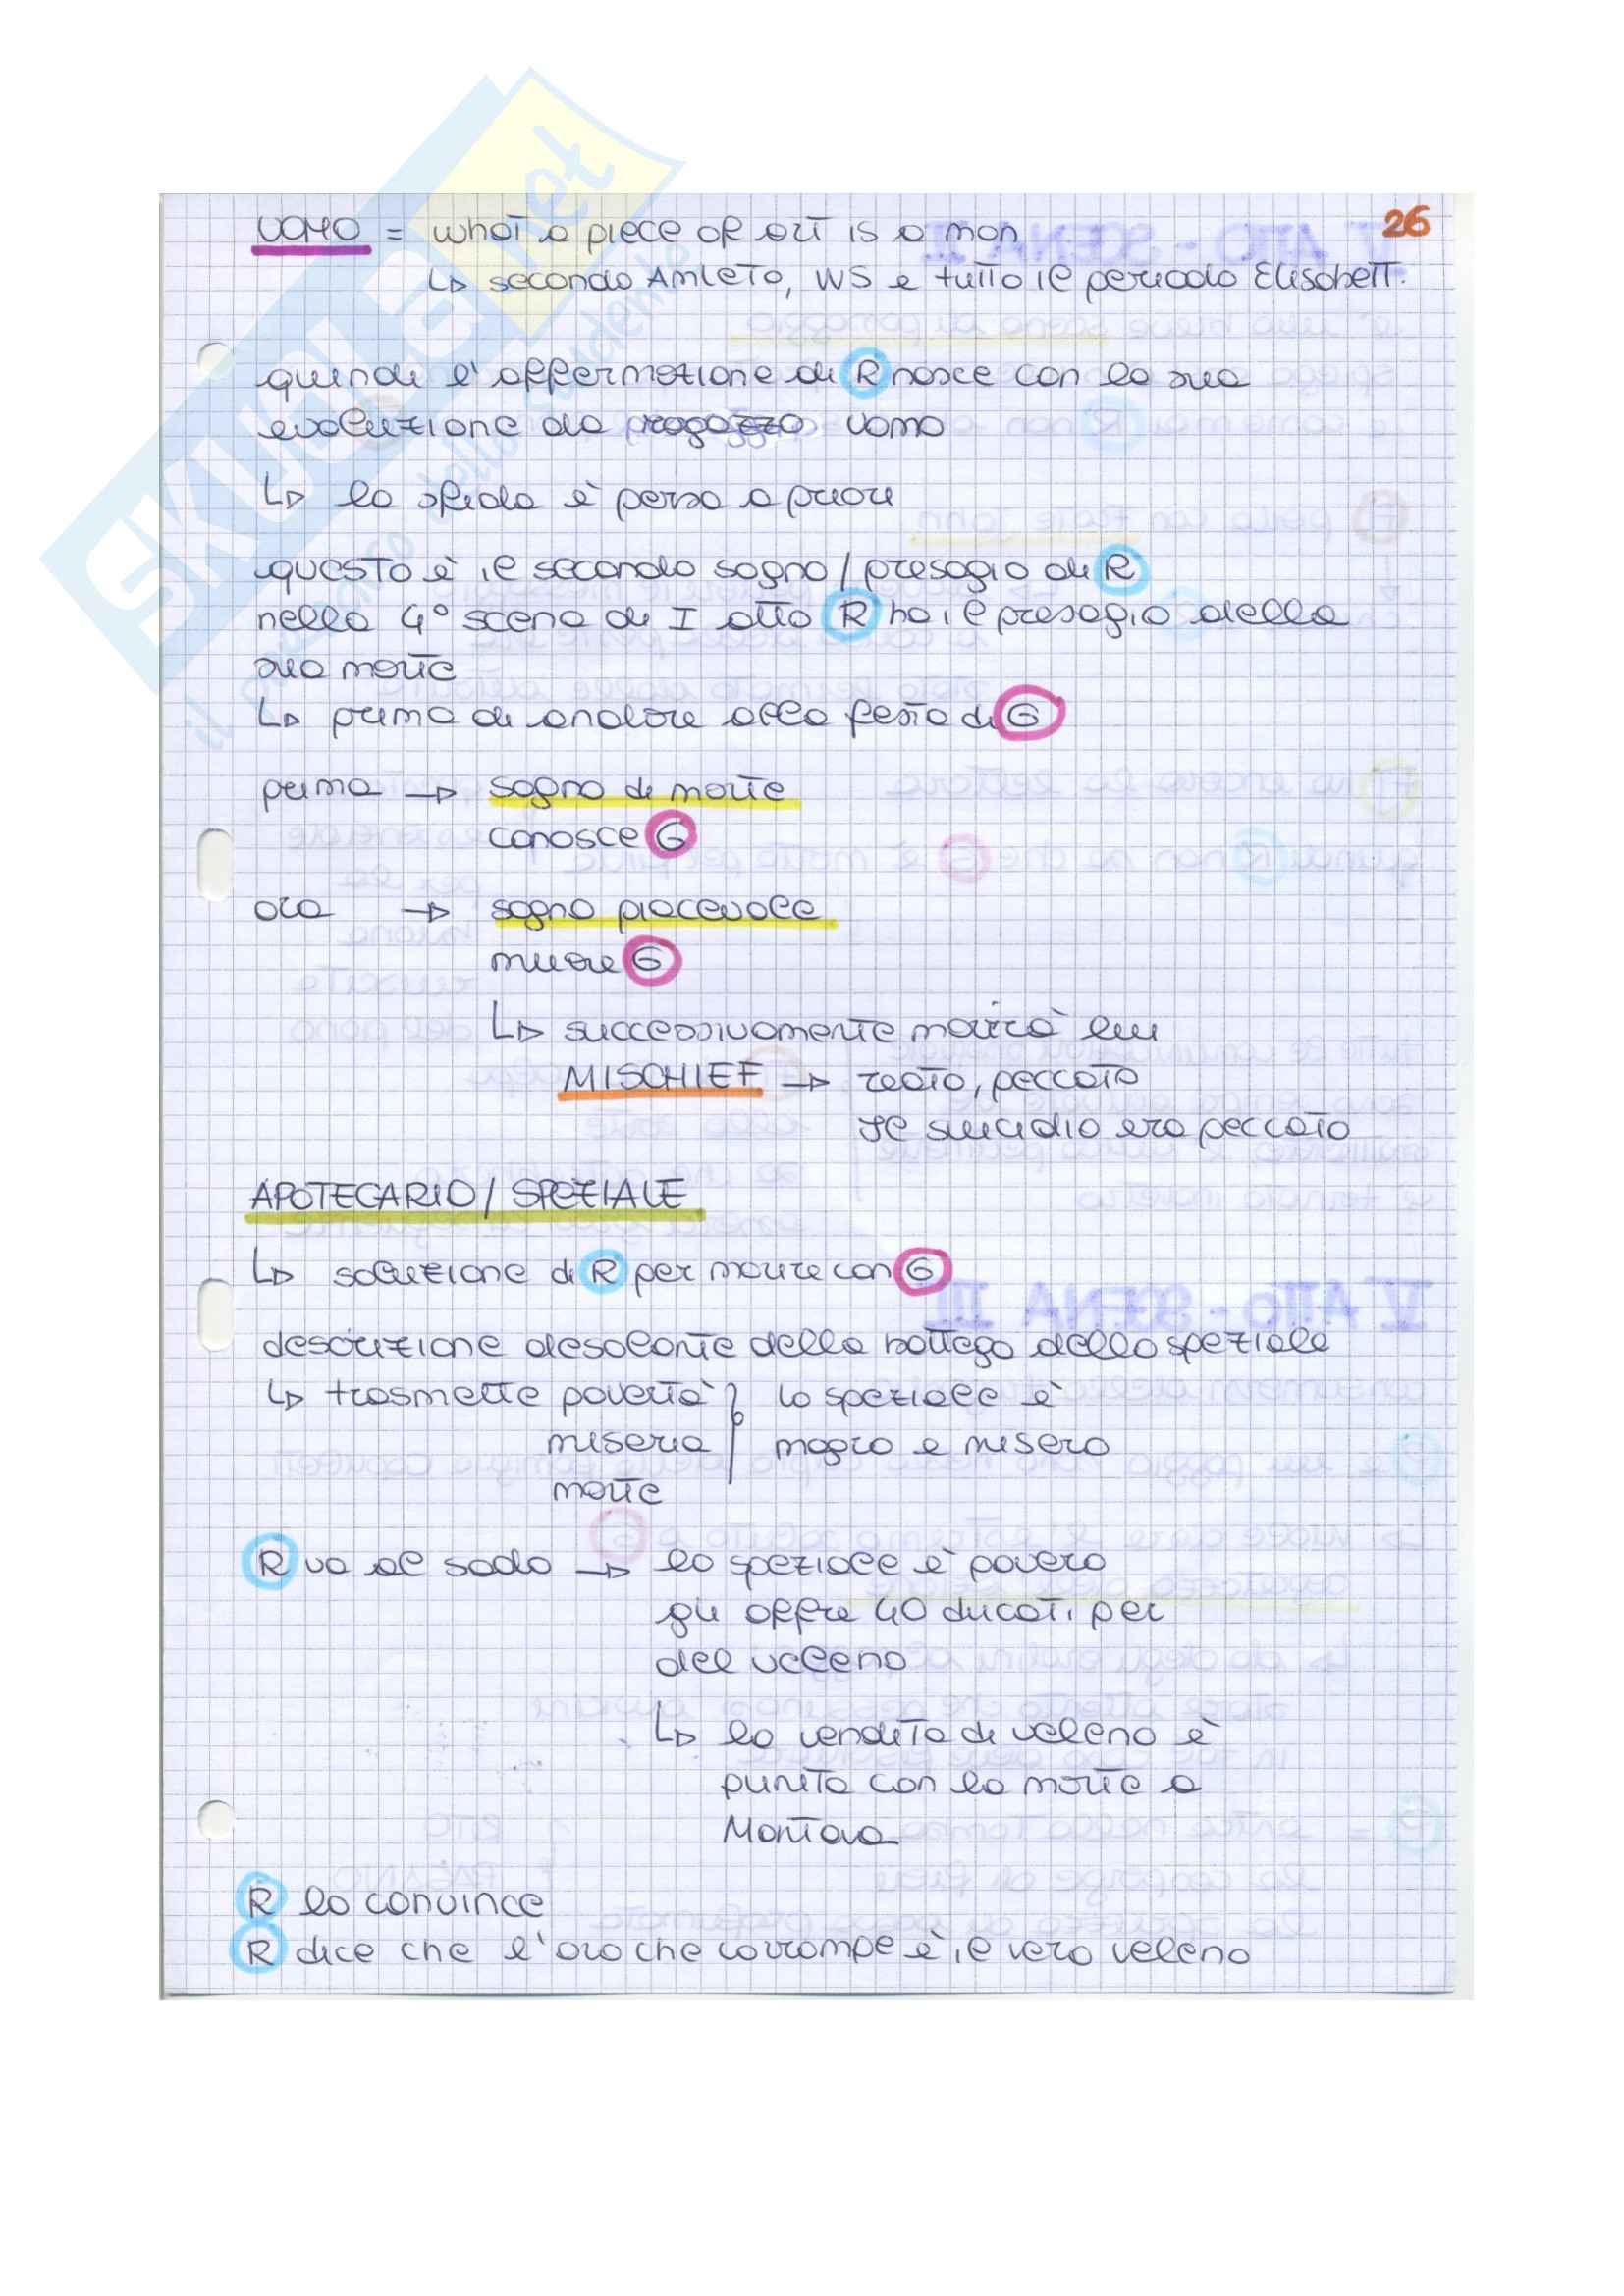 26
UOMO = what a piece of art is a man
↳ secondo Amleto, WS e tutto il periodo Elisabett.
quindi l'affermazione di R nasce con la sua
evoluzione da ragazzo uomo
↳ la sfida è persa a priori
questo è il secondo sogno/presagio di R
nella 4° scena di I atto R ha il presagio della
sua morte
↳ prima di andare alla festa di G
prima → sogno di morte
conosce G
ora → sogno piacevole
muore G
↳ successivamente morirà lui
MISCHIEF → reato, peccato
Il suicidio era peccato
APOTECARIO/SPEZIALE
↳ soluzione di R per morire con G
descrizione desolante della bottega dello speziale
↳ trasmette povertà } lo speziale è
miseria magro e misero
morte
R va al sodo → lo speziale è povero
gli offre 40 ducati per
del veleno
↳ la vendita di veleno è
punita con la morte a
Mantova
R lo convince
R dice che l'oro che corrompe è il vero veleno
SKUOLA.net